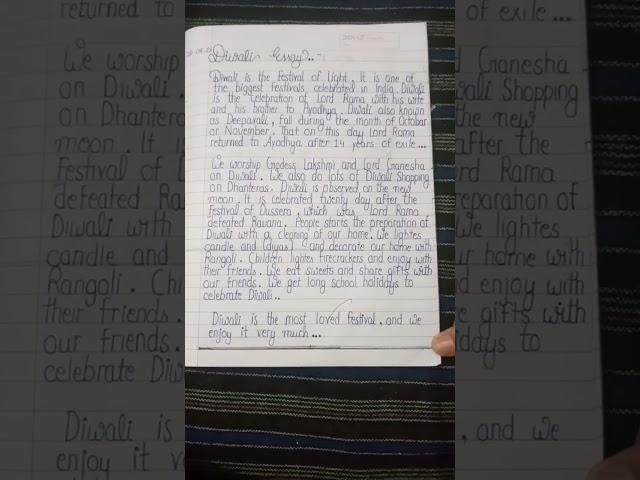 Diwali Essay..-
Diwali is the Festival of Light, It is one of
the biggest festivals, celebrated in India. Diwali
is the celebration of Lord Rama with his wife
and his brother to Ayodhya. Diwali also known
as Deepavali, fall during the month of October
or November. That on this day Lord Rama
returned to Ayodhya after 14 years of exile...
We worship Godess Lakshmi and Lord Ganesha
on Diwali. We also do lots of Diwali Shopping
on Dhanteras. Diwali is observed on the new
moon. It is celebrated twenty day after the
festival of Dussera, which was Lord Rama
defeated Ravana. People starts the preparation of
Diwali with a cleaning of our home. We lightes
candle and (diyas) and decorate our home with
Rangoli. Children lightes firecrackers and enjoy with
their friends. We eat sweets and share gifts with
our friends. We get long school holidays to
celebrate Diwali..
Diwali is the most loved festival, and we
enjoy it very much...